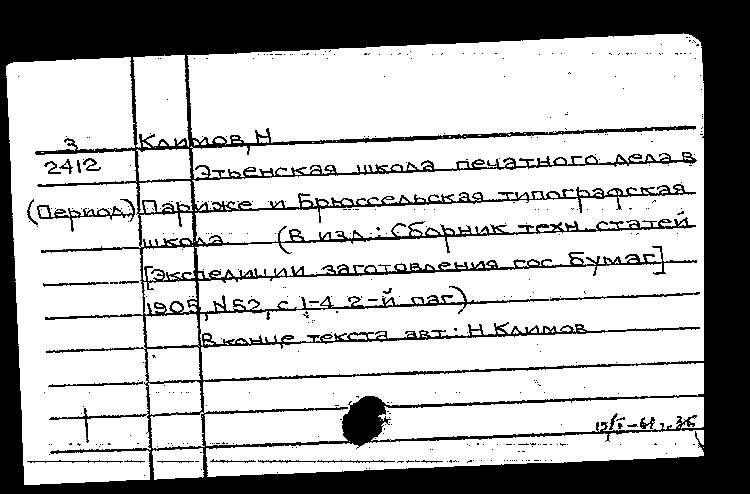 3
2412
(Период.)
Климов, Н
Этьенская школа печатного дела в
Париже и Брюссельская типографская
школа (В изд.: Сборник техн. статей
[Экспедиции заготовления гос бумаг]
1905, N52, с. 1-4 2-й паг)
В конце текста авт.: Н. Климов